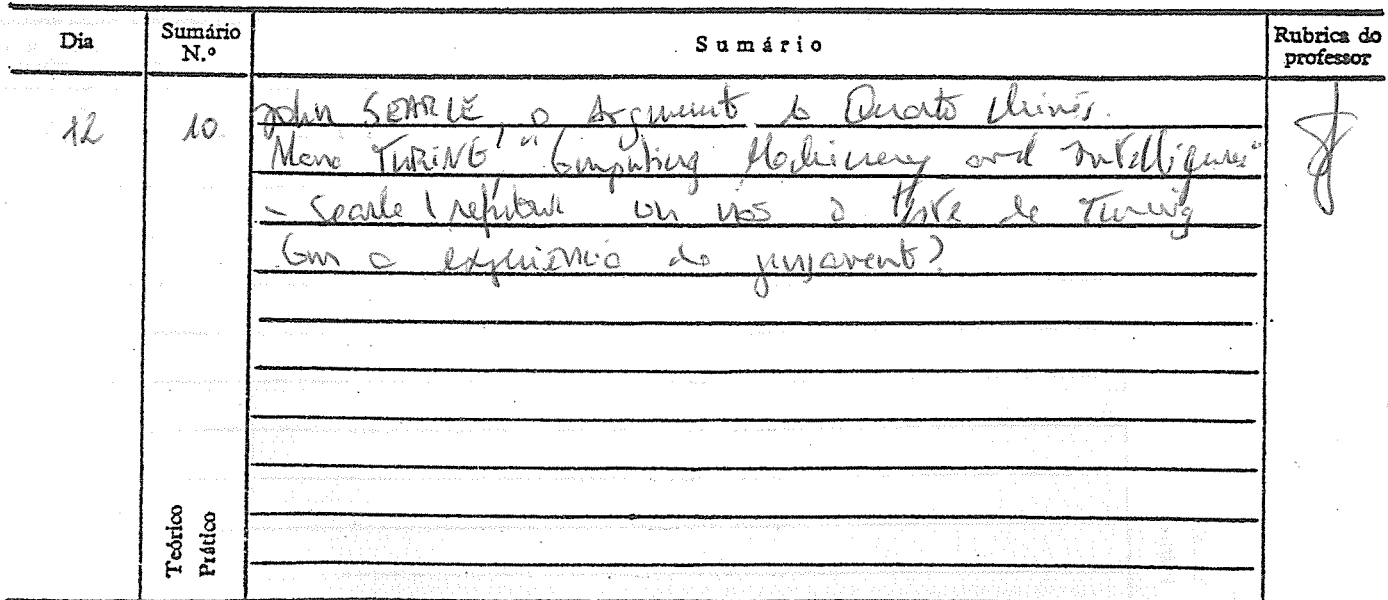 Dia
Sumário N.º
Sumário
Rubrica do professor
12
10
John SEARLE, o Argumento do Quarto Chinês.
Alan TURING, "Computing Machinery and Intelligence"
- Searle refutou ou não o teste de Turing
com a experiência do pensamento?
Teórico
Prático